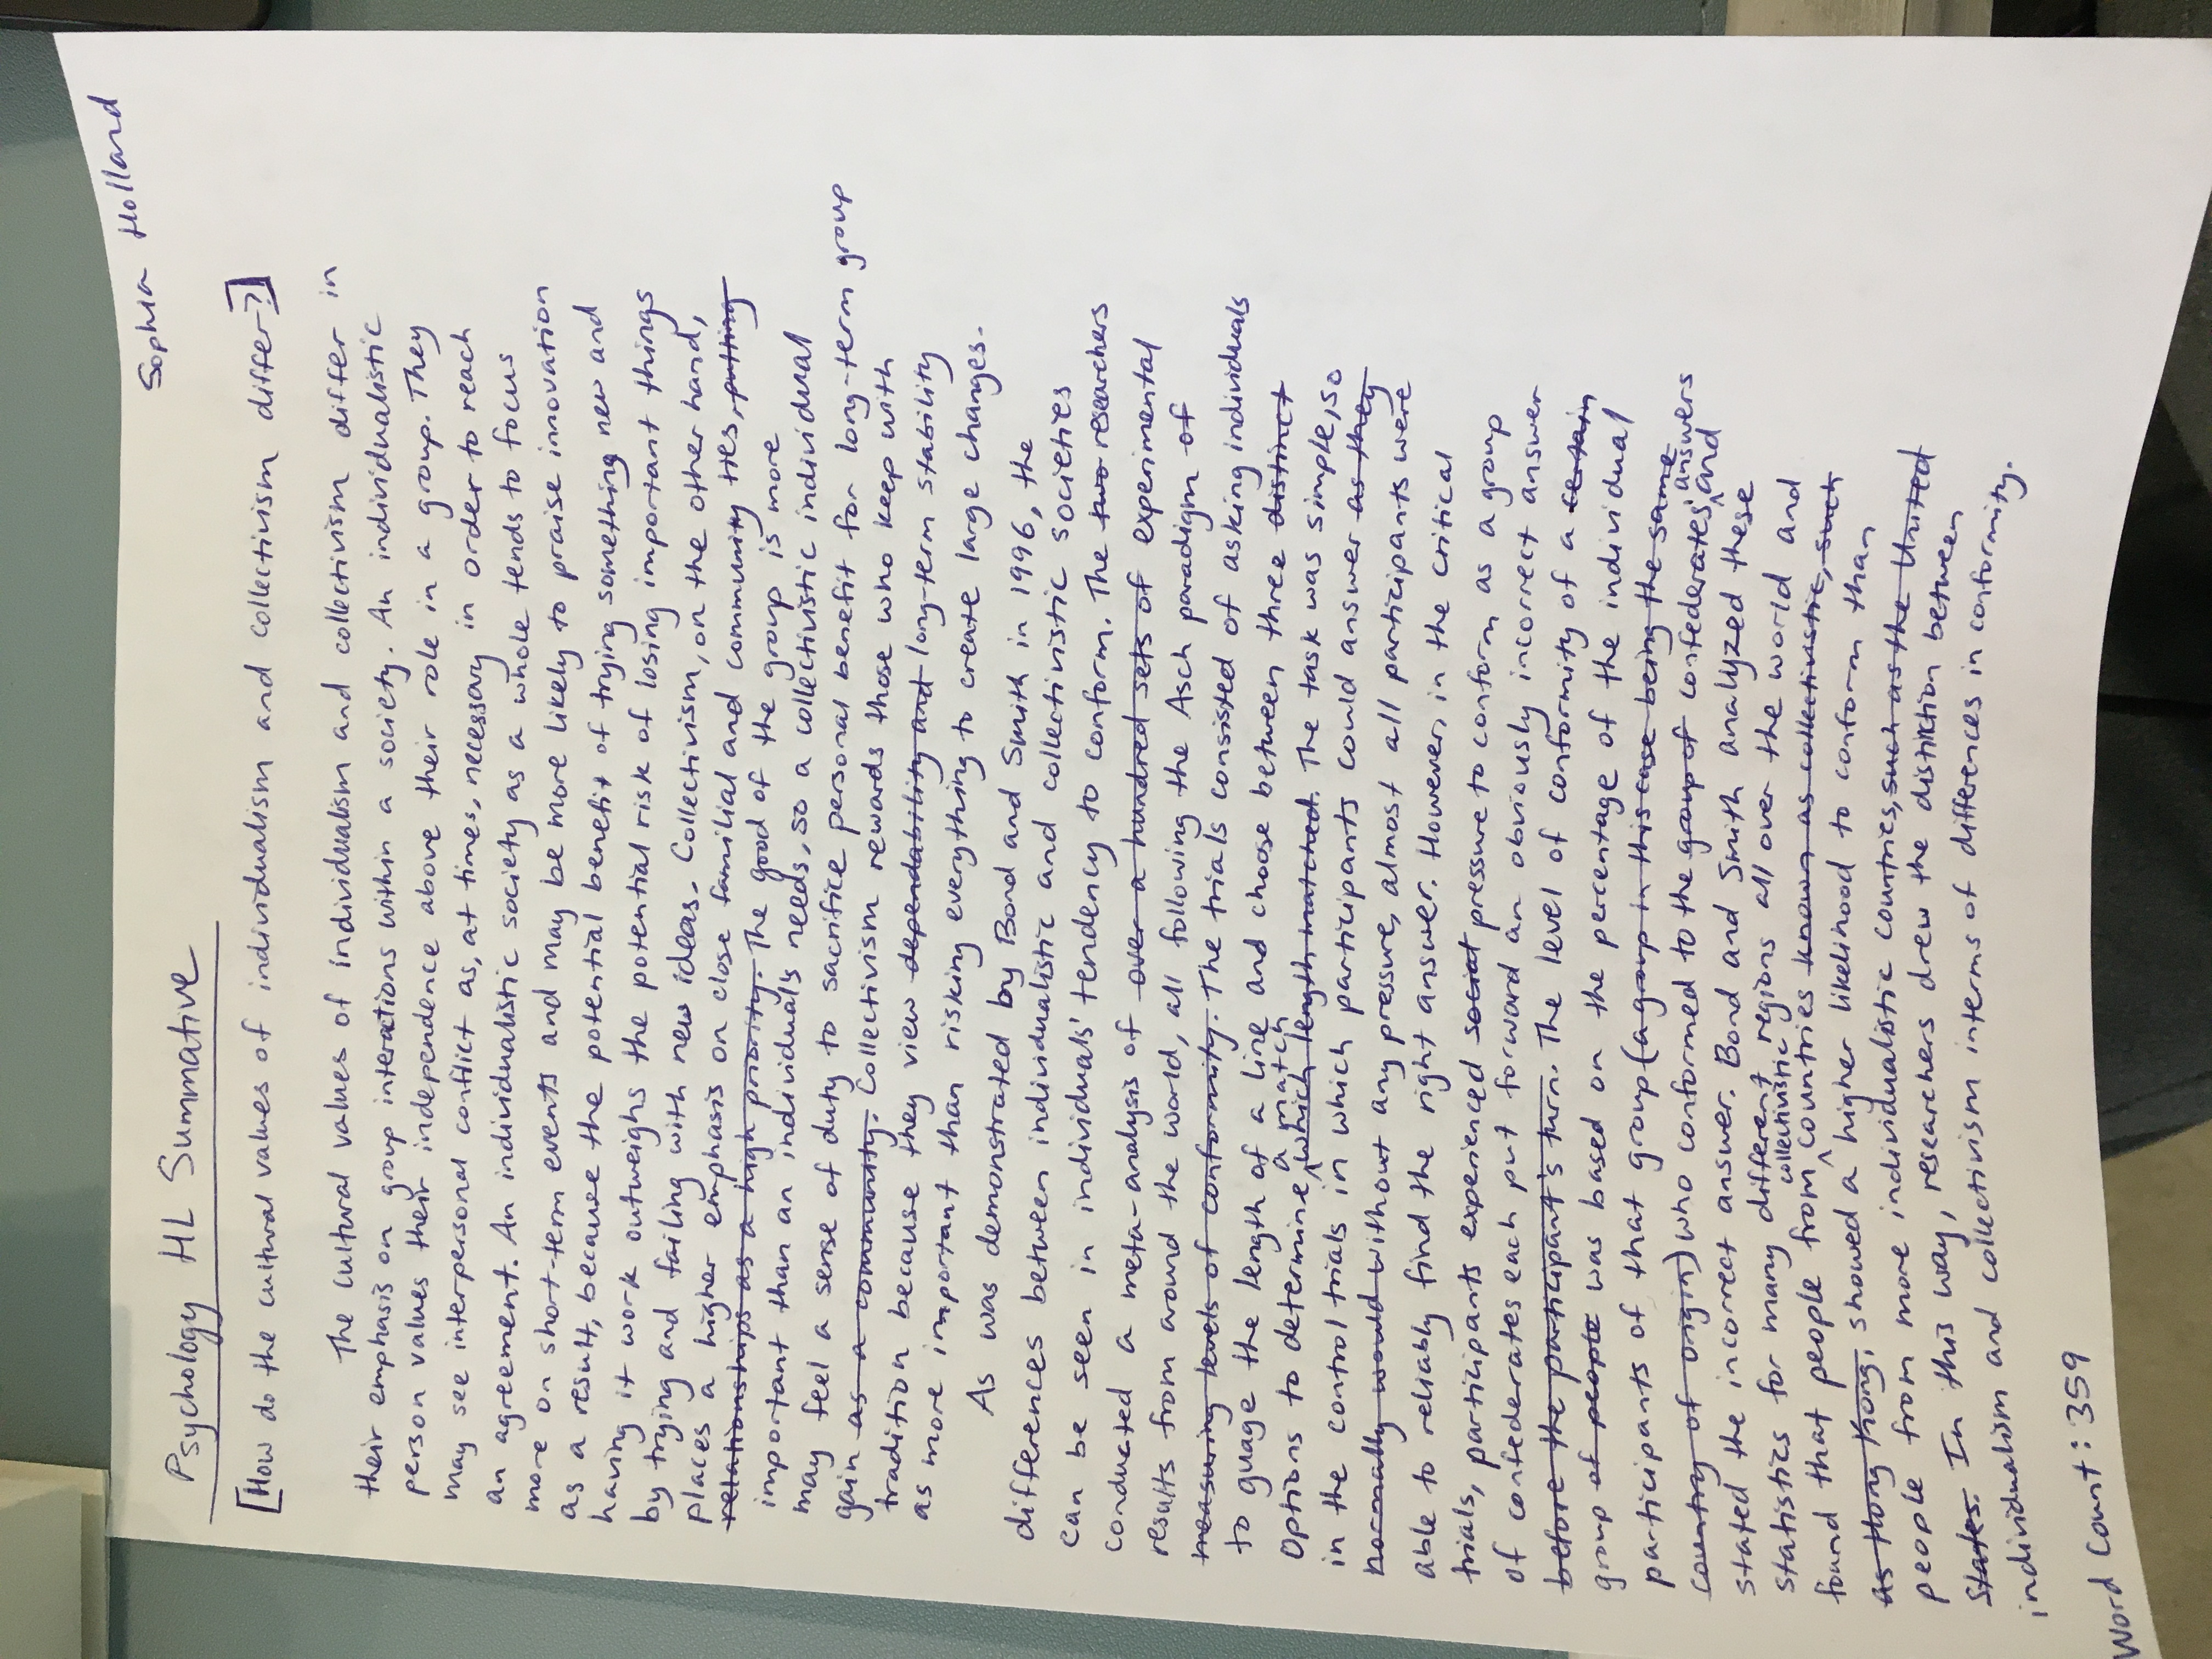 Sophia Holland
Psychology HL Summative
[How do the cultural values of individualism and collectivism differ?]
The cultural values of individualism and collectivism differ in
their emphasis on group interactions within a society. An individualistic
person values their independence above their role in a group. They
may see interpersonal conflict as, at times, necessary in order to reach
an agreement. An individualistic society as a whole tends to focus
more on short-term events and may be more likely to praise innovation
as a result, because the potential benefit of trying something new and
having it work outweighs the potential risk of losing important things
by trying and failing with new ideas. Collectivism, on the other hand,
places a higher emphasis on close familial and community ties, putting
relationships as a high priority. The good of the group is more
important than an individual's needs, so a collectivistic individual
may feel a sense of duty to sacrifice personal benefit for long-term group
gain as a community. Collectivism rewards those who keep with
tradition because they view dependability and long-term stability
as more important than risking everything to create large changes.
As was demonstrated by Bond and Smith in 1996, the
differences between individualistic and collectivistic societies
can be seen in individuals' tendency to conform. The two researchers
conducted a meta-analysis of over a hundred sets of experimental
results from around the world, all following the Asch paradigm of
measuring levels of conformity. The trials consisted of asking individuals
to guage the length of a line and choose between three distinct
options to determine a match which length matched. The task was simple, so
in the control trials in which participants could answer as they
normally would without any pressure, almost all participants were
able to reliably find the right answer. However, in the critical
trials, participants experienced social pressure to conform as a group
of confederates each put forward an obviously incorrect answer
before the participant's turn. The level of conformity of a certain
group of people was based on the percentage of the individual
participants of that group (a group in this case being the same
country of origin) who conformed to the group of confederates' answers and
stated the incorrect answer. Bond and Smith analyzed these
statistics for many different regions all over the world and
found that people from collectivistic countries known as collectivistic, such
as Hong Kong, showed a higher likelihood to conform than
people from more individualistic countries, such as the United
States. In this way, researchers drew the distinction between
individualism and collectivism in terms of differences in conformity.
Word Count: 359